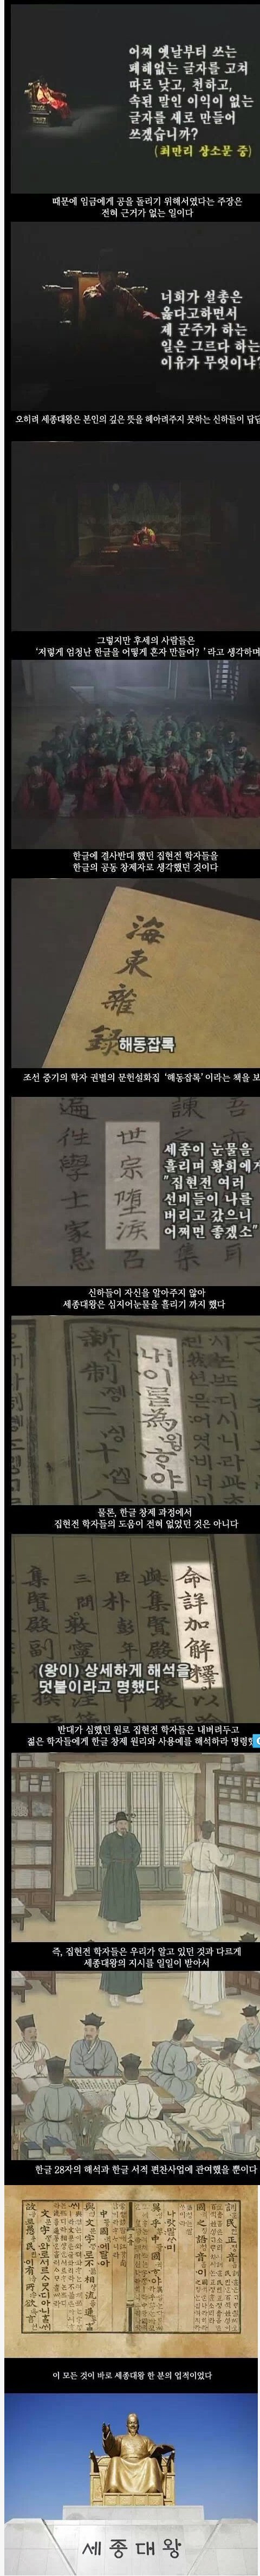 어찌 옛날부터 쓰는
폐해없는 글자를 고쳐
따로 낮고, 천하고,
속된 말인 이익이 없는
글자를 새로 만들어
쓰겠습니까?
(최만리 상소문 중)
때문에 임금에게 공을 돌리기 위해서였다는 주장은
전혀 근거가 없는 일이다
너희가 설총은
옳다고하면서
제 군주가 하는
일은 그르다 하는
이유가 무엇이냐?
오히려 세종대왕은 본인의 깊은 뜻을 헤아려주지 못하는 신하들이 답답
그렇지만 후세의 사람들은
'저렇게 엄청난 한글을 어떻게 혼자 만들어? ' 라고 생각하며
한글에 결사반대 했던 집현전 학자들을
한글의 공동 창제자로 생각했던 것이다
海東雜錄
해동잡록
조선 중기의 학자 권별의 문헌설화집 '해동잡록' 이라는 책을 보
世宗墮淚
세종이 눈물을
흘리며 황희에게
"집현전 여러
선비들이 나를
버리고 갔으니
어쩌면 좋겠소"
신하들이 자신을 알아주지 않아
세종대왕은 심지어눈물을 흘리기 까지 했다
내이를爲윙ᄒᆞ야
물론, 한글 창제 과정에서
집현전 학자들의 도움이 전혀 없었던 것은 아니다
命詳加解釋
(왕이) 상세하게 해석을
덧붙이라고 명했다
반대가 심했던 원로 집현전 학자들은 내버려두고
젊은 학자들에게 한글 창제 원리와 사용예를 해석하라 명령했
즉, 집현전 학자들은 우리가 알고 있던 것과 다르게
세종대왕의 지시를 일일이 받아서
한글 28자의 해석과 한글 서적 편찬사업에 관여했을 뿐이다
이 모든 것이 바로 세종대왕 한 분의 업적이었다
세종대왕